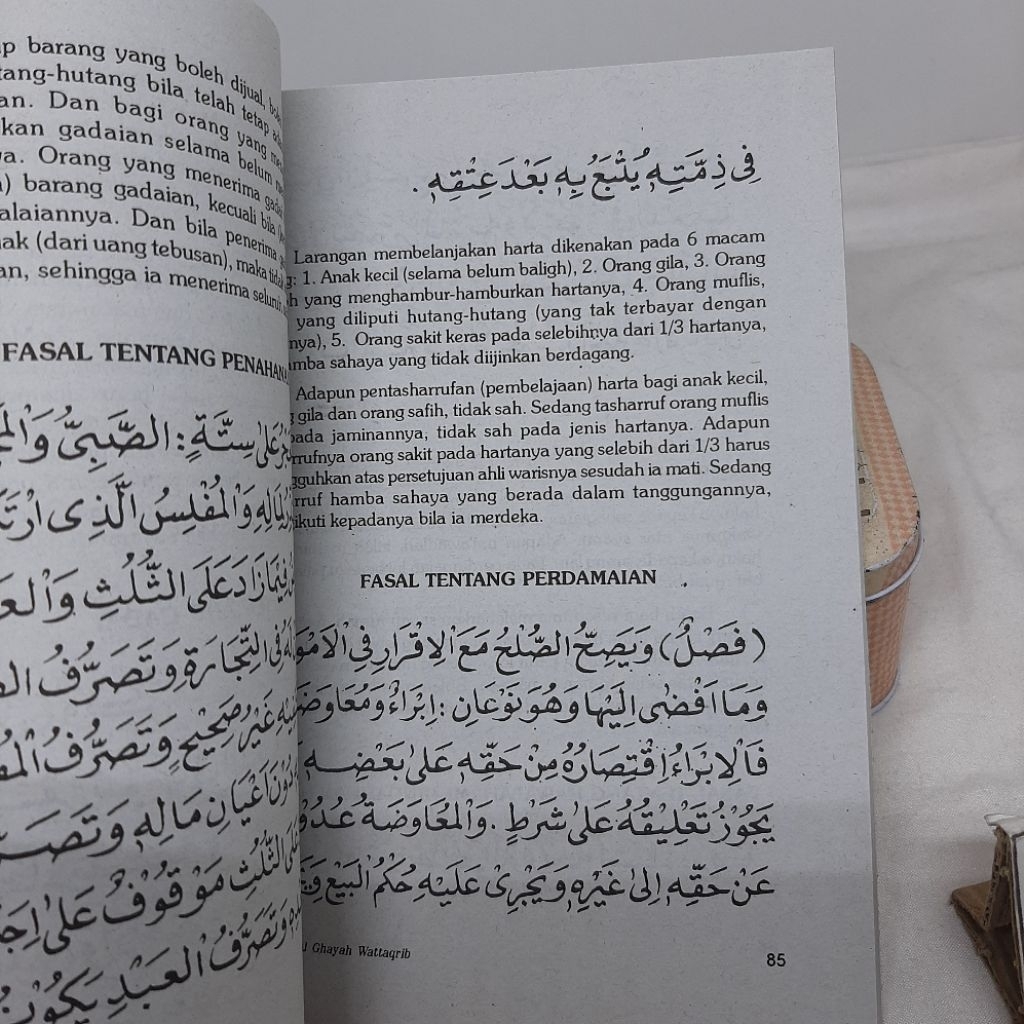 barang yang boleh dijual,
tang-hutang bila telah tetap
an. Dan bagi orang yang
kan gadaian selama belum
ya. Orang yang menerima
) barang gadaian, kecuali bila
alaiannya. Dan bila penerima
ak (dari uang tebusan), maka
an, sehingga ia menerima
FASAL TENTANG PENAHANA
عَلَى سِتَّةٍ : الصَّبِيِّ وَالْمَ
لِمَالِهِ وَالْمُفْلِسِ الَّذِى ارْتَ
فِيْمَا زَادَ عَلَى الثُّلُثِ وَالْعَ
فِى التِّجَارَةِ وَتَصَرُّفُ ال
غَيْرُ صَحِيْحٍ وَتَصَرُّفُ الْمُ
دُوْنَ اَعْيَانِ مَالِهِ وَتَصَرُّ
الثُّلُثِ مَوْقُوْفٌ عَلَى اِجَ
وَتَصَرُّفُ الْعَبْدِ يَكُوْنُ
فِى ذِمَّتِهِ يُتْبَعُ بِهِ بَعْدَ عِتْقِهِ .
Larangan membelanjakan harta dikenakan pada 6 macam
g: 1. Anak kecil (selama belum baligh), 2. Orang gila, 3. Orang
h yang menghambur-hamburkan hartanya, 4. Orang muflis,
yang diliputi hutang-hutang (yang tak terbayar dengan
nya), 5. Orang sakit keras pada selebihnya dari 1/3 hartanya,
mba sahaya yang tidak diijinkan berdagang.
Adapun pentasharrufan (pembelajaan) harta bagi anak kecil,
gila dan orang safih, tidak sah. Sedang tasharruf orang muflis
pada jaminannya, tidak sah pada jenis hartanya. Adapun
rrufnya orang sakit pada hartanya yang selebih dari 1/3 harus
gguhkan atas persetujuan ahli warisnya sesudah ia mati. Sedang
rruf hamba sahaya yang berada dalam tanggungannya,
ikuti kepadanya bila ia merdeka.
FASAL TENTANG PERDAMAIAN
( فَصْلٌ ) وَيَصِحُّ الصُّلْحُ مَعَ الْاِقْرَارِ فِى الْاَمْوَا
وَمَا اَفْضٰى اِلَيْهَا وَهُوَ نَوْعَانِ : اِبْرَاءٌ وَمُعَاوَضَ
فَالْاِبْرَاءُ اِقْتِصَارُهُ مِنْ حَقِّهِ عَلَى بَعْضِهِ
يَجُوْزُ تَعْلِيْقُهُ عَلَى شَرْطٍ . وَالْمُعَاوَضَةُ عُدُوْ
عَنْ حَقِّهِ اِلَى غَيْرِهِ وَيَجْرِى عَلَيْهِ حُكْمُ الْبَيْعِ
Ghayah Wattaqrib
85